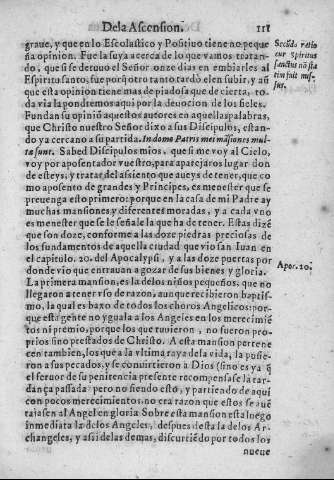 De la Ascension. 111
graue, y que en lo Escolastico y Positiuo tiene no peque
ña opinion. Fue la suya acerca de lo que vamos tratan-
do, que si se detuuo el Señor onze dias en embiarles al
Espiritu santo, fue porque otro tanto tardò el en subir, y aũ
que esta opinion tiene mas de piadosa que de cierta, to-
da via la pondremos aqui por la deuocion de los fieles.
Fundan su opiniõ aquestos autores en aquellas palabras,
que Christo nuestro Señor dixo a sus Discipulos, estan-
do ya cercano a su partida. In domo Patris mei mãsiones mul-
tæ sunt. Sabed Discipulos mios, que si me voy al Cielo,
voy por aposentador vuestro, para aparejaros lugar don
de esteys; y tratar del asiento que aueys de tener, que co
mo aposento de grandes y Principes, es menester que se
preuenga esto primero: porque en la casa de mi Padre ay
muchas mansiones y diferentes moradas, y a cada vno
es menester que se le señale la que ha de tener. Estas dizẽ
que son doze, conforme a las doze piedras preciosas de
los fundamentos de aquella ciudad que vio san Iuan en
el capitulo. 20. del Apocalypsi, y a las doze puertas por
donde vio que entrauan a gozar de sus bienes y gloria.
La primera mansion, es la de los niños pequeños, que no
llegaron a tener vso de razon, aunque recibieron baptis-
mo, la qual es baxo de todos los choros Angelicos: por-
que esta gente no yguala a los Angeles en los merecimiẽ
tos ni premio, porque los que tuuieron, no fueron pro-
prios sino prestados de Christo. A esta mansion pertene
cen tambien, los que a la vltima raya de la vida, la pusie-
ron a sus pecados, y se conuirtieron a Dios (sino es ya q̃
el feruor de su penitencia presente recompensase la tar-
dança passada) pero no siendo esto, y partiendo de aqui
con pocos merecimientos, no era razon que estos se auẽ
tajasen al Angel en gloria. Sobre esta mansion esta luego
inmediata la de los Angeles, despues desta la de los Ar-
changeles, y asi de las demas, discurriẽdo por todos los
nueue
Secũda ratio
cur spiritus
sanctus nõ sta
tim fuit mis-
sus.
Apoc. 20.